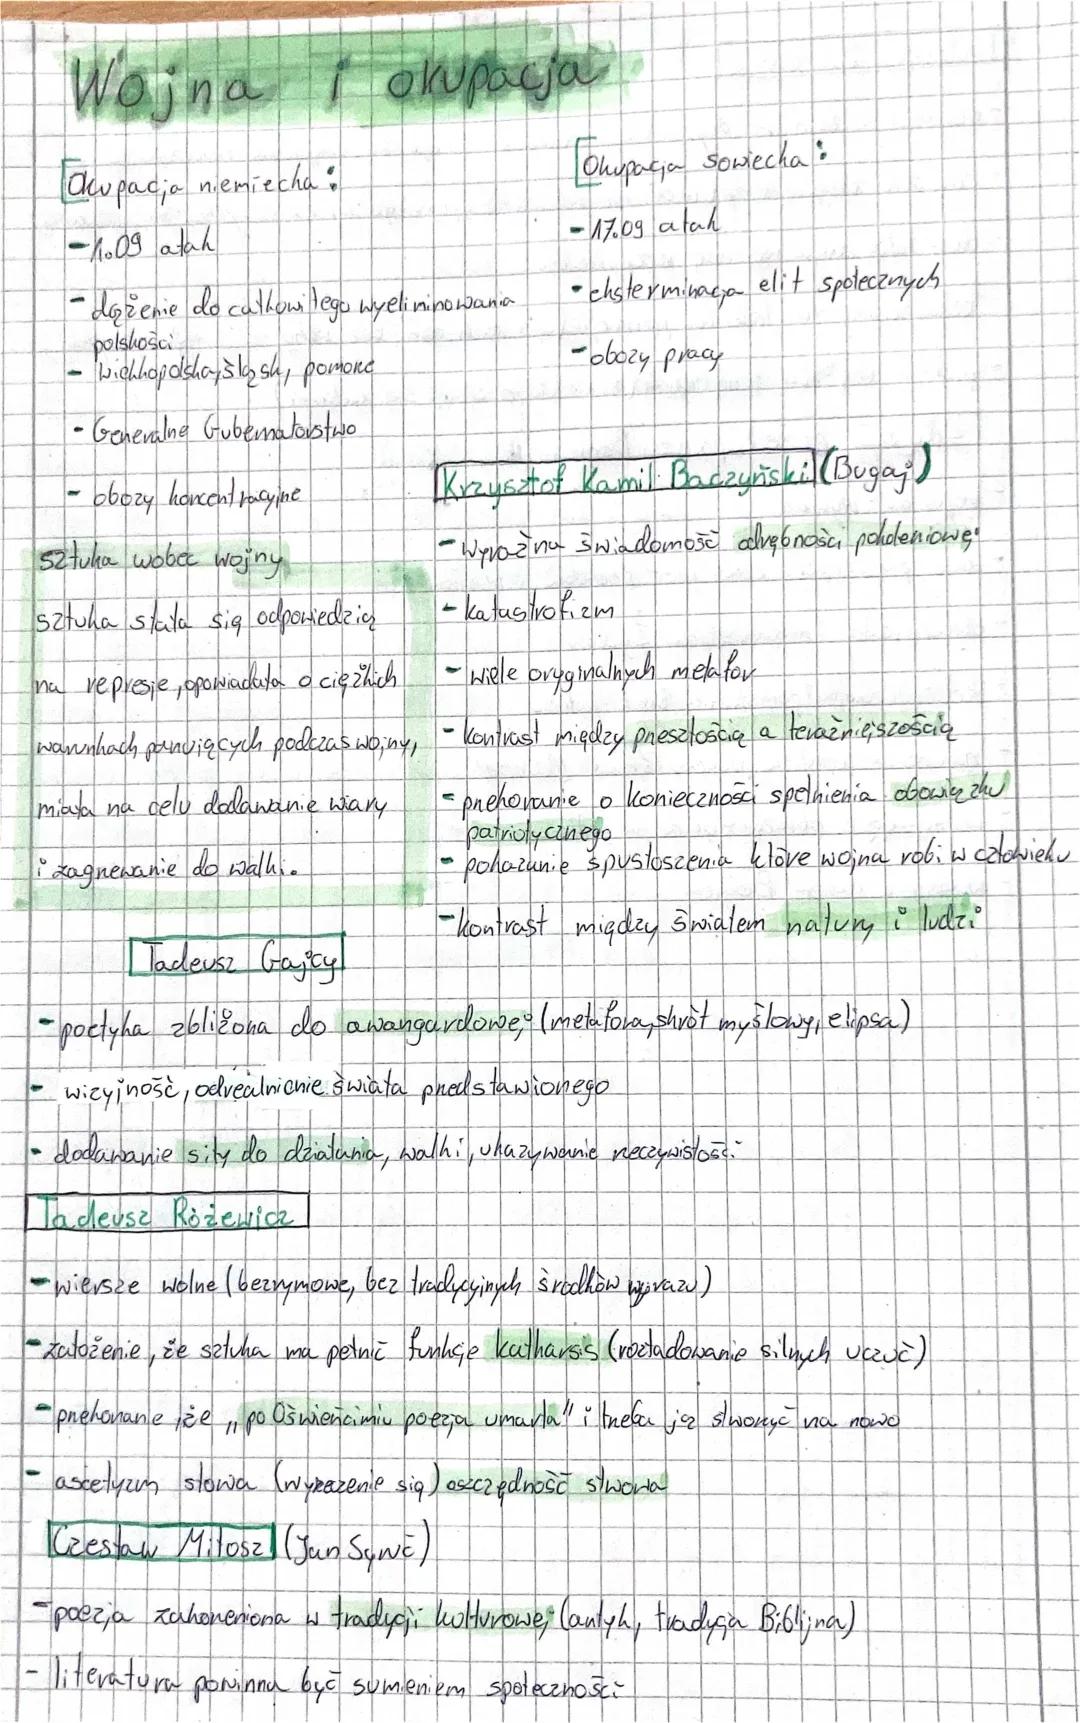 Wojna i okupacja
Okupacja niemiecka:
- 1.09 atak
- dążenie do całkowitego wyeliminowania
polskości
- Wielkopolska, Śląsk, pomorze
- Generalne Gubernatorstwo
- obozy koncentracyjne
Okupacja sowiecka:
- 17.09 atak
- eksterminacja elit społecznych
- obozy pracy
sztuka wobec wojny
sztuka stała się odpowiedzią
na represje, opowiadała o ciężkich
warunkach panujących podczas wojny,
miała na celu dodawanie wiary
i zagrzewanie do walki.
Krzysztof Kamil Baczyński (Bugaj)
- wyraźna świadomość odrębności pokoleniowej
- katastrofizm
- wiele oryginalnych metafor
- kontrast między przeszłością a teraźniejszością
- przekonanie o konieczności spełnienia obowiązku
patriotycznego
- pokazanie spustoszenia które wojna robi w człowieku
- kontrast między światem natury i ludzi
Tadeusz Gajcy
- poetyka zbliżona do awangardowej (metafora, skrót myślowy, elipsa)
- wizyjność, odrealnienie świata przedstawionego
- dodawanie siły do działania, walki, ukazywanie rzeczywistości
Tadeusz Różewicz
- wiersze wolne (bezrymowe, bez tradycyjnych środków wyrazu)
- założenie, że sztuka ma pełnić funkcje katharsis (rozładowanie silnych uczuć)
- przekonanie, że „po Oświęcimiu poezja umarła" i trzeba ją stworzyć na nowo
- ascetyzm słowa (wyrażenie się) oszczędność słwowa
Czesław Miłosz (Jan Syruć)
- poezja zakorzeniona w tradycji kulturowej (antyk, tradycja Biblijna)
- literatura powinna być sumieniem społeczności